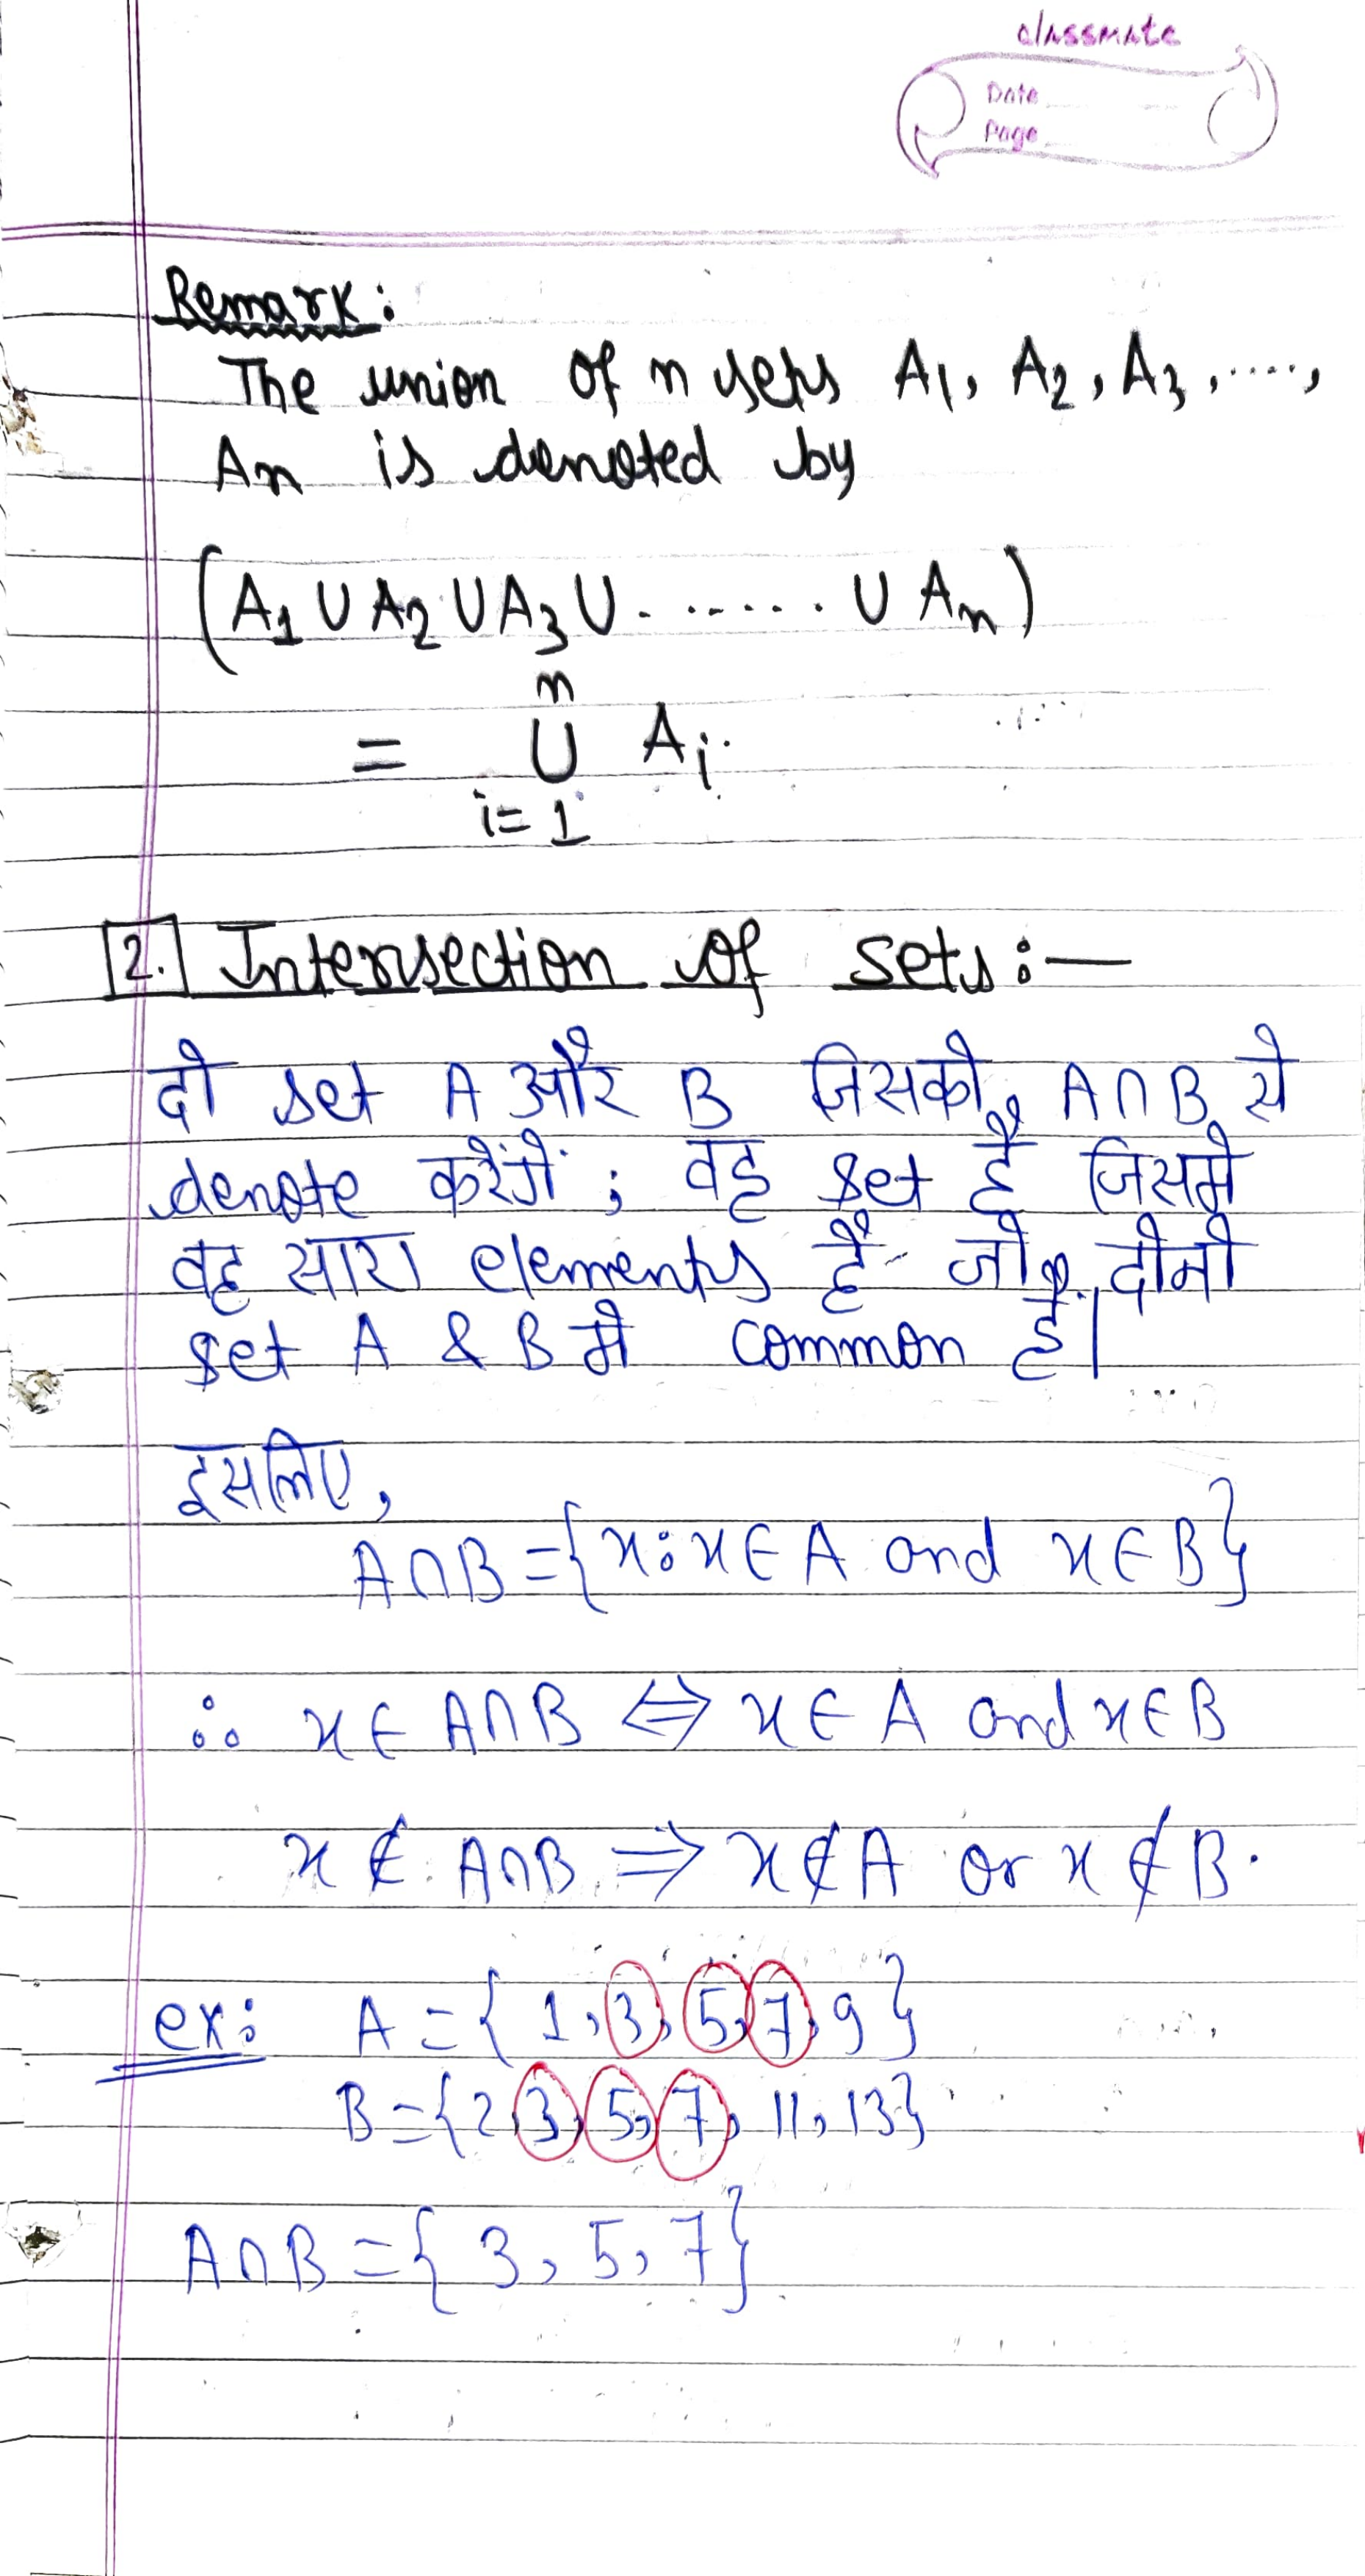 classmate
Date
Page
Remark:
The union of n sets A₁, A₂, A₃, .....,
An is denoted by
(A₁ ∪ A₂ ∪ A₃ ∪ ....... ∪ Aₙ)
n
= ∪ Aᵢ.
i=1
2. Intersection of sets:—
दो set A और B जिसको A∩B से
denote करेंगें ; वह set है जिसमे
वह सारा elements हैं जो दोनो
set A & B मे common हैं।
इसलिए,
A∩B = {x : x ∈ A and x ∈ B}
∴ x ∈ A∩B ⇔ x ∈ A and x ∈ B
x ∉ A∩B ⇒ x ∉ A or x ∉ B.
ex: A = { 1, 3, 5, 7, 9 }
B = {2, 3, 5, 7, 11, 13}
A∩B = { 3, 5, 7}